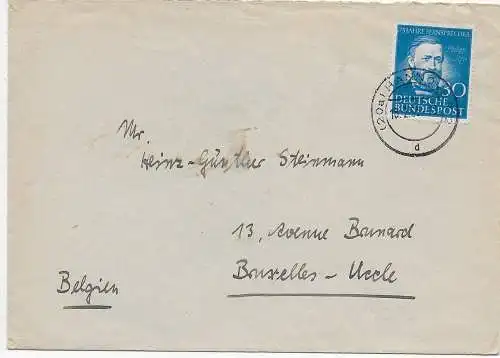 75 JAHRE FERNSPRECHER
30
DEUTSCHE
BUNDESPOST
(20a) HANNOVER
d
Mr.
Heinz-Günther Steinmann
13, Avenue Brunard
Bruxelles - Uccle
Belgien